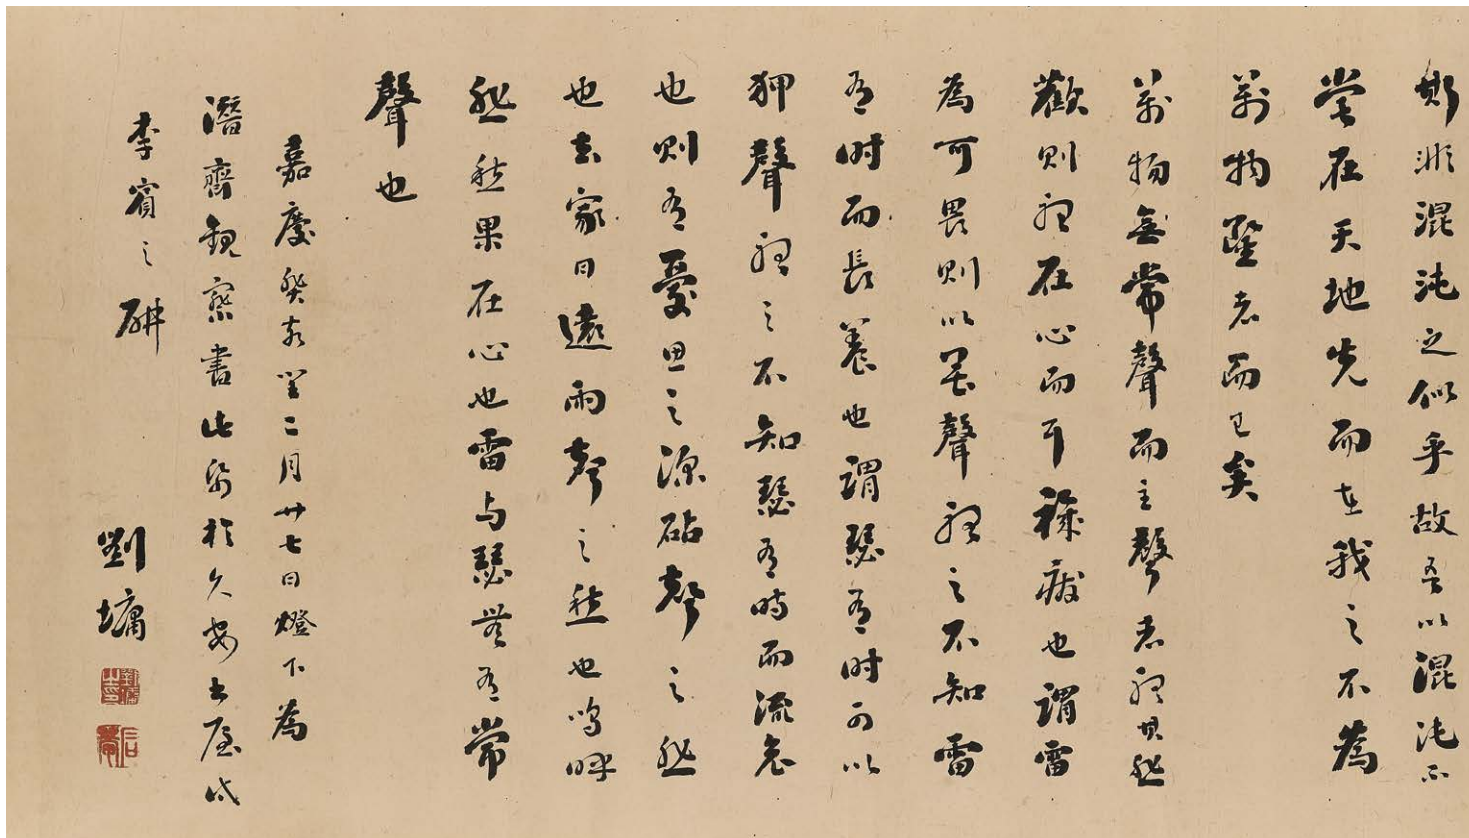 非混沌之似乎故吾以混沌不
嘗在天地先而在我之不為
萬物鑿者而已矣
萬物無常聲而主聲者聽然
歡則聽在心而耳疾也謂雷
為可畏則以惡聲聽之不知雷
有時而長養也謂瑟有時可以
狎聲聽之不知瑟有時而流哀
也則有憂思之源砧聲之然
也去家日遠雨聲之愁也嗚呼
然愁果在心也雷與瑟無有常
聲也
嘉慶癸亥閏二月廿七日燈下為
潛齋觀察書此紙於久安書屋代
李賓之酬
劉墉
劉墉之印
石菴